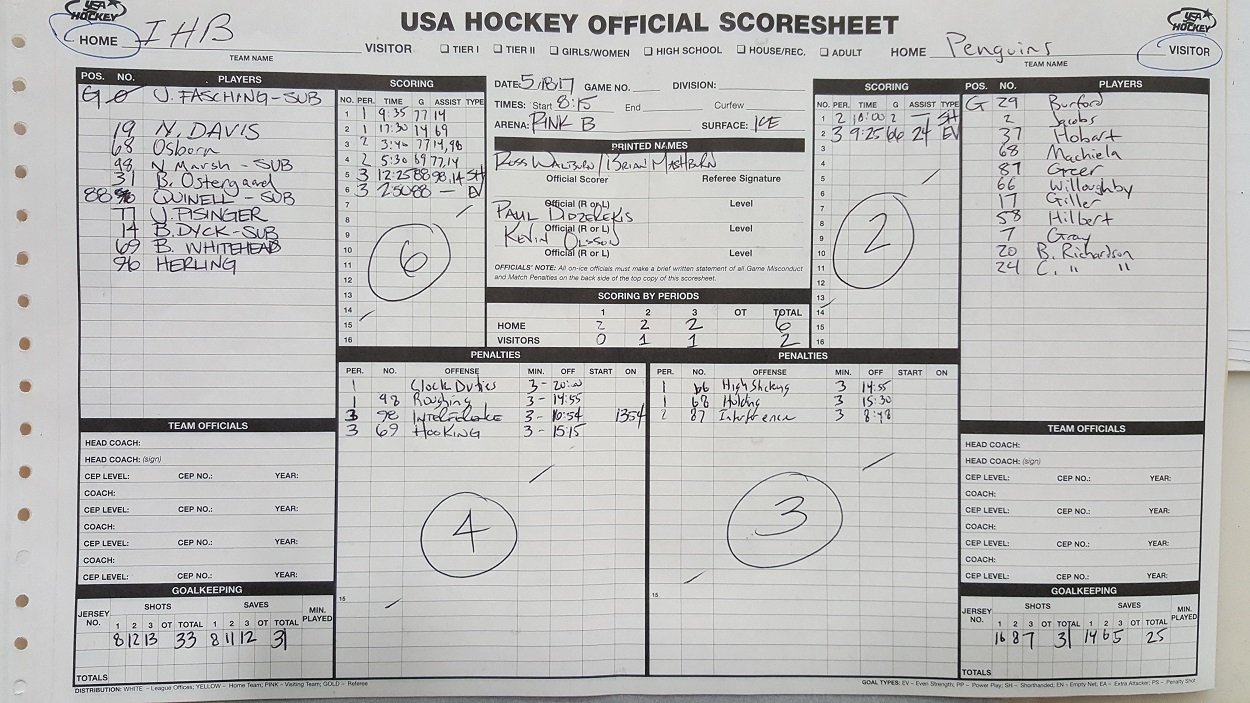 USA HOCKEY
USA HOCKEY OFFICIAL SCORESHEET
USA HOCKEY
HOME IHB VISITOR
TEAM NAME
☐ TIER I ☐ TIER II ☐ GIRLS/WOMEN ☐ HIGH SCHOOL ☐ HOUSE/REC. ☐ ADULT
HOME Penguins VISITOR
TEAM NAME
POS. NO. PLAYERS
G 0 J. FASCHING-SUB
19 N. DAVIS
68 Osborn
98 N. Marsh - SUB
3 B. Ostergaard
88 QUINELL - SUB
77 J. PISINGER
14 B. DYCK-SUB
69 B. WHITEHEAD
96 HERLING
SCORING
NO. PER. TIME G ASSIST TYPE
1 1 9:35 77 14
2 1 17:30 14 69
3 2 3:40 77 14,98
4 2 5:30 69 77,14
5 3 12:25 88 98,14 SH
6 3 2:50 88 — EV
7
8
9
10
11
12
13
14
15
16
6
DATE: 5/18/17 GAME NO. DIVISION:
TIMES: Start 8:15 End Curfew
ARENA: PINK B SURFACE: ICE
PRINTED NAMES
ROSS WALBURN/BRIAN MASHBURN
Official Scorer Referee Signature
Official (R or L) Level
PAUL DIDZEREKIS
Official (R or L) Level
KEVIN OLSSON
Official (R or L) Level
OFFICIALS' NOTE: All on-ice officials must make a brief written statement of all Game Misconduct
and Match Penalties on the back side of the top copy of this scoresheet.
SCORING BY PERIODS
1 2 3 OT TOTAL
HOME 2 2 2 6
VISITORS 0 1 1 2
SCORING
NO. PER. TIME G ASSIST TYPE
1 2 18:00 2 — SH
2 3 9:25 66 24 EV
3
4
5
6
7
8
9
10
11
12
13
14
15
16
2
POS. NO. PLAYERS
G 29 Burford
2 Jacobs
37 Hobart
68 Machiela
87 Greer
66 Willoughby
17 Giller
58 Hilbert
7 Gray
20 B. Richardson
24 C. " "
PENALTIES
PER. NO. OFFENSE MIN. OFF START ON
1 Clock Duties 3 - 20:00
1 98 Roughing 3 - 14:55
3 98 INTERFERENCE 3 - 16:54 1354
3 69 HOOKING 3 - 15:15
15
4
PENALTIES
PER. NO. OFFENSE MIN. OFF START ON
1 66 High Sticking 3 14:55
1 68 Holding 3 15:30
2 87 Interference 3 8:48
15
3
TEAM OFFICIALS
HEAD COACH:
HEAD COACH: (sign)
CEP LEVEL: CEP NO.: YEAR:
COACH:
CEP LEVEL: CEP NO.: YEAR:
COACH:
CEP LEVEL: CEP NO.: YEAR:
COACH:
CEP LEVEL: CEP NO.: YEAR:
GOALKEEPING
JERSEY NO. SHOTS SAVES MIN. PLAYED
1 2 3 OT TOTAL 1 2 3 OT TOTAL
8 12 13 33 8 11 12 31
TOTALS
TEAM OFFICIALS
HEAD COACH:
HEAD COACH: (sign)
CEP LEVEL: CEP NO.: YEAR:
COACH:
CEP LEVEL: CEP NO.: YEAR:
COACH:
CEP LEVEL: CEP NO.: YEAR:
COACH:
CEP LEVEL: CEP NO.: YEAR:
GOALKEEPING
JERSEY NO. SHOTS SAVES MIN. PLAYED
1 2 3 OT TOTAL 1 2 3 OT TOTAL
16 8 7 31 14 6 5 25
TOTALS
DISTRIBUTION: WHITE – League Offices; YELLOW – Home Team; PINK – Visiting Team; GOLD – Referee
GOAL TYPES: EV – Even Strength; PP – Power Play; SH – Shorthanded; EN – Empty Net; EA – Extra Attacker; PS – Penalty Shot